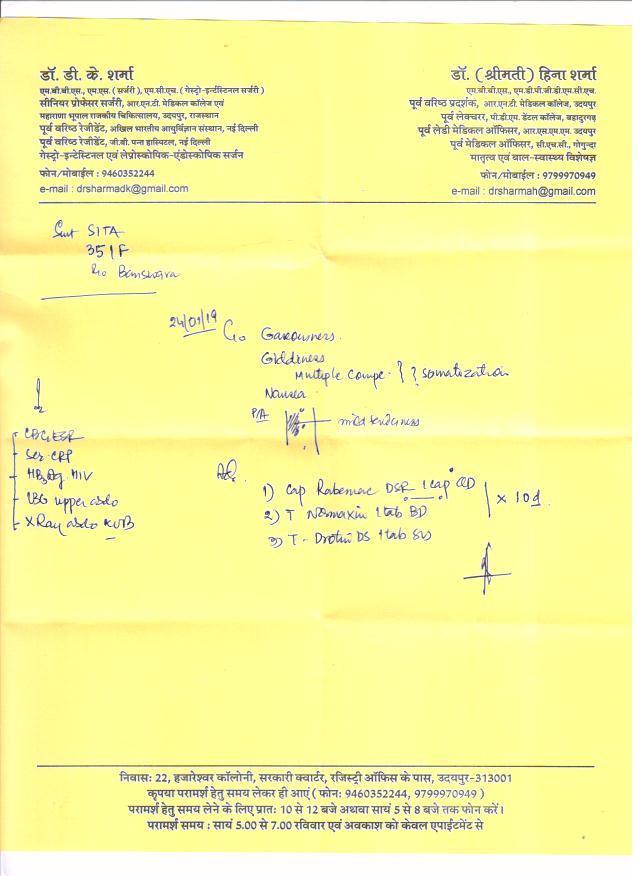 डॉ. डी. के. शर्मा
एम.बी.बी.एस., एम.एस. ( सर्जरी ), एम.सी.एच. ( गेस्ट्रो-इन्टेस्टिनल सर्जरी )
सीनियर प्रोफेसर सर्जरी, आर.एन.टी. मेडिकल कॉलेज एवं
महाराणा भूपाल राजकीय चिकित्सालय, उदयपुर, राजस्थान
पूर्व वरिष्ठ रेजीडेंट, अखिल भारतीय आयुर्विज्ञान संस्थान, नई दिल्ली
पूर्व वरिष्ठ रेजीडेंट, जी.बी. पन्त हास्पिटल, नई दिल्ली
गेस्ट्रो-इन्टेस्टिनल एवं लेप्रोस्कोपिक-एंडोस्कोपिक सर्जन
फोन/मोबाईल : 9460352244
e-mail : drsharmadk@gmail.com
डॉ. (श्रीमती) हिना शर्मा
एम.बी.बी.एस., एम.डी.पी.जी.डी.एम.सी.एच.
पूर्व वरिष्ठ प्रदर्शक, आर.एन.टी. मेडिकल कॉलेज, उदयपुर
पूर्व लेक्चरर, पी.डी.एम. डेंटल कॉलेज, बहादुरगढ़
पूर्व लेडी मेडिकल ऑफिसर, आर.एस.एम.एम. उदयपुर
पूर्व मेडिकल ऑफिसर, सी.एच.सी., गोगुन्दा
मातृत्व एवं बाल-स्वास्थ्य विशेषज्ञ
फोन/मोबाईल : 9799970949
e-mail : drsharmah@gmail.com
Smt SITA
35/F
R/o Banswara
24/01/19 C/o
Giddiness
Multiple ? somatization
Nausea
P/A mild tenderness
CBC, ESR
Ser CRP
HBsAg HIV
USG upper abdo
X Ray abdo KUB
Adv.
1) Cap Rabemac DSR 1 cap OD
2) T Normaxin 1 tab BD × 10d
3) T- Drotin DS 1 tab SOS
निवास: 22, हजारेश्वर कॉलोनी, सरकारी क्वार्टर, रजिस्ट्री ऑफिस के पास, उदयपुर-313001
कृपया परामर्श हेतु समय लेकर ही आएं ( फोन: 9460352244, 9799970949 )
परामर्श हेतु समय लेने के लिए प्रातः 10 से 12 बजे अथवा सायं 5 से 8 बजे तक फोन करें।
परामर्श समय : सायं 5.00 से 7.00 रविवार एवं अवकाश को केवल एपाईंटमेंट से